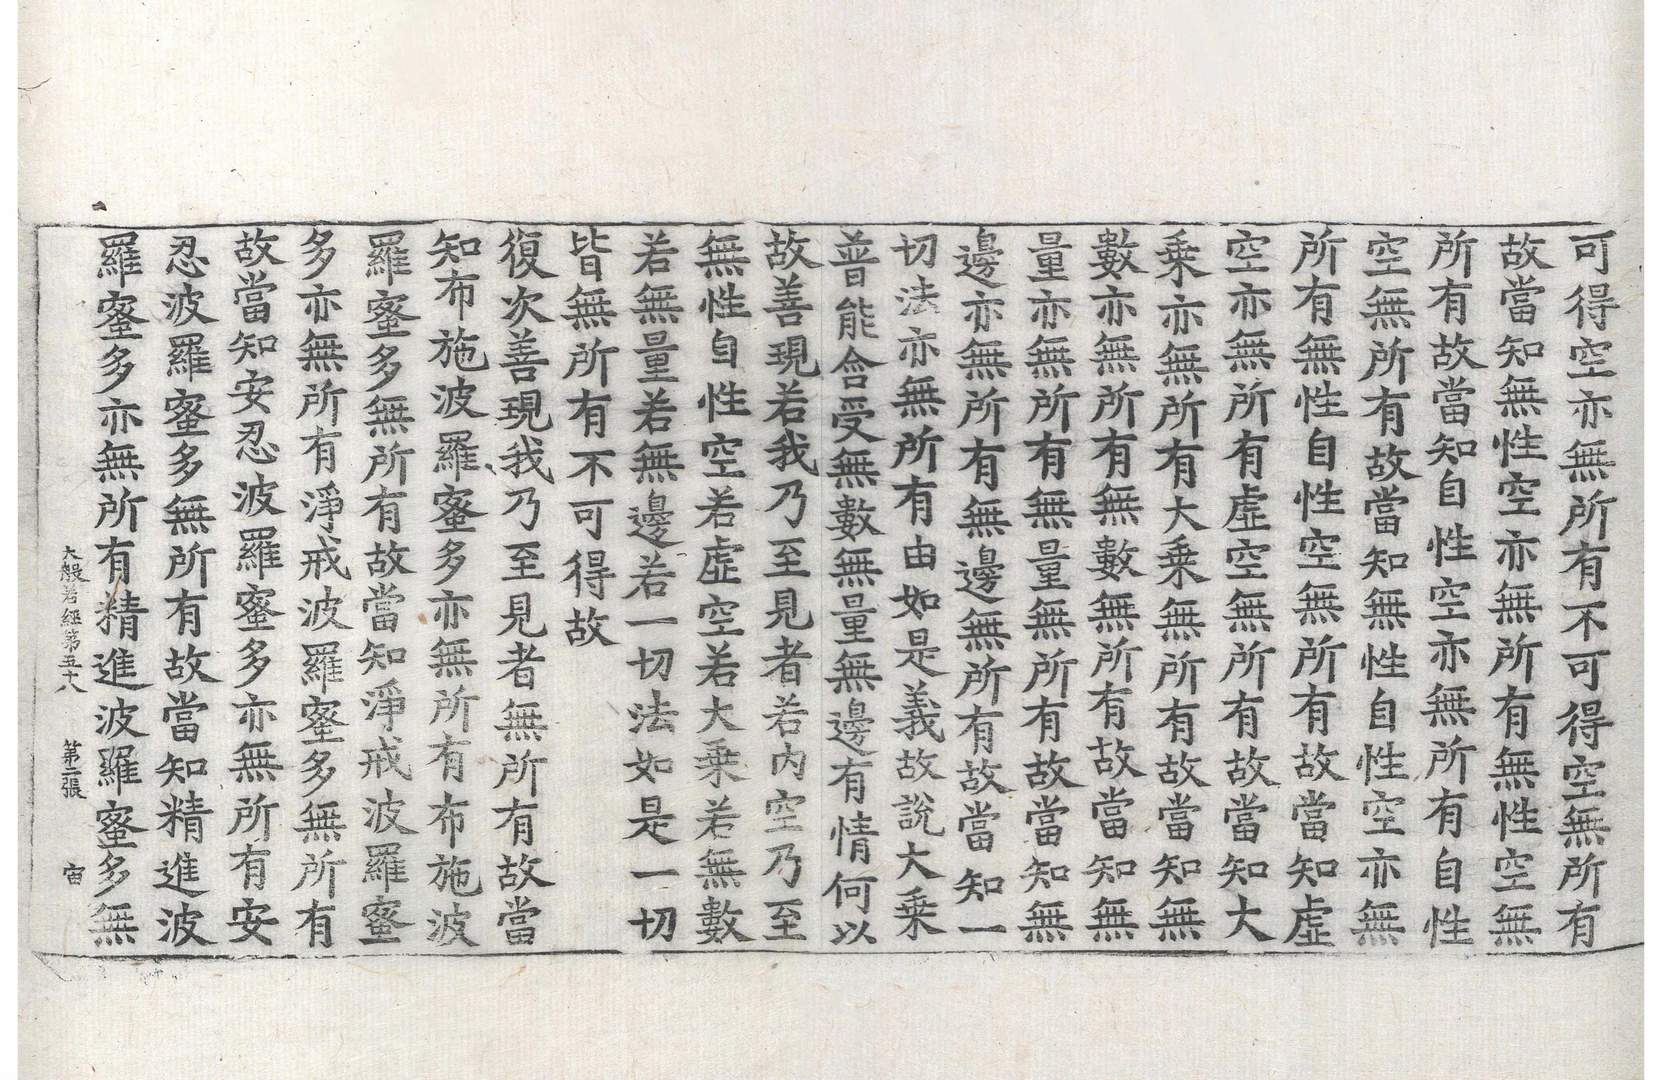 可得空亦無所有不可得空無所有
故當知無性空亦無所有無性空無
所有故當知自性空亦無所有自性
空無所有故當知無性自性空亦無
所有無性自性空無所有故當知虛
空亦無所有虛空無所有故當知大
乘亦無所有大乘無所有故當知無
數亦無所有無數無所有故當知無
量亦無所有無量無所有故當知無
邊亦無所有無邊無所有故當知一
切法亦無所有由如是義故說大乘
普能含受無數無量無邊有情何以
故善現若我乃至見者若內空乃至
無性自性空若虛空若大乘若無數
若無量若無邊若一切法如是一切
皆無所有不可得故
復次善現我乃至見者無所有故當
知布施波羅蜜多亦無所有布施波
羅蜜多無所有故當知淨戒波羅蜜
多亦無所有淨戒波羅蜜多無所有
故當知安忍波羅蜜多亦無所有安
忍波羅蜜多無所有故當知精進波
羅蜜多亦無所有精進波羅蜜多無
大般若經第五十八 第二張 宙